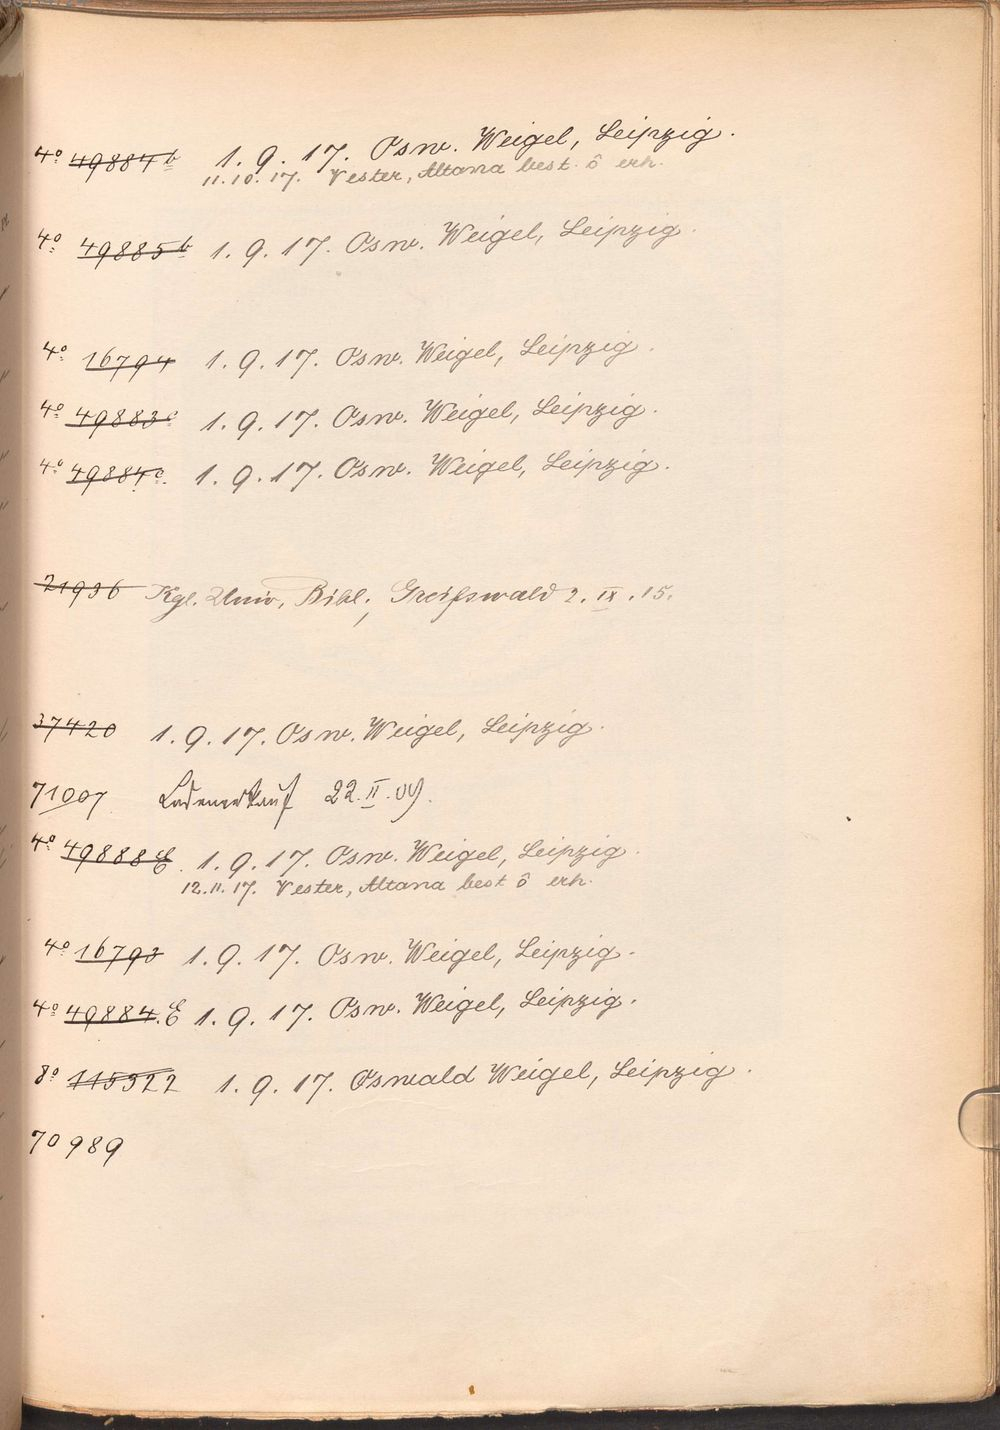 4º 49884b 1. 9. 17. Osw. Weigel, Leipzig.
11.10.17. Vester, Altona best. ô erh.
4º 49885b 1. 9. 17. Osw. Weigel, Leipzig.
4º 16794 1. 9. 17. Osw. Weigel, Leipzig.
4º 49883c 1. 9. 17. Osw. Weigel, Leipzig.
4º 49884c. 1. 9. 17. Osw. Weigel, Leipzig.
21936 Kgl. Univ. Bibl., Greifswald 2. IX. 15.
37420 1. 9. 17. Osw. Weigel, Leipzig.
71007 Ladenverkauf 22. II. 09.
4º 49888E 1. 9. 17. Osw. Weigel, Leipzig.
12.11.17. Vester, Altona best ô erh.
4º 16793 1. 9. 17. Osw. Weigel, Leipzig.
4º 49884.E 1. 9. 17. Osw. Weigel, Leipzig.
8º 115322 1. 9. 17. Oswald Weigel, Leipzig.
70989